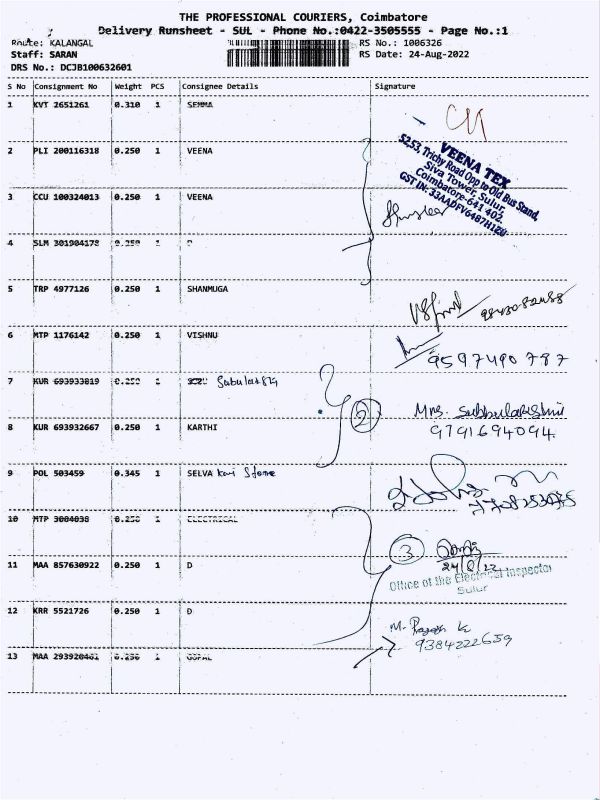 THE PROFESSIONAL COURIERS, Coimbatore
Delivery Runsheet - SUL - Phone No.:0422-3505555 - Page No.:1
Route: KALANGAL RS No.: 1006326
Staff: SARAN RS Date: 24-Aug-2022
DRS No.: DCJB100632601
S No Consignment No Weight PCS Consignee Details Signature
1 KVT 2651261 0.310 1 SEMMA
2 PLI 200116318 0.250 1 VEENA
VEENA TEX
52,53, Trichy Road Opp to Old Bus Stand,
Siva Tower, Sulur,
Coimbatore-641 402.
GST IN: 33AADFV6487H1Z0
3 CCU 100324013 0.250 1 VEENA
4 SLM 301904178 0.250 1 D
5 TRP 4977126 0.250 1 SHANMUGA
6 MTP 1176142 0.250 1 VISHNU
9597490787
7 KUR 693933819 0.250 1
8 KUR 693932667 0.250 1 KARTHI
2
Mrs. Subbulakshmi
9791694094
9 POL 503459 0.345 1 SELVA Kavi Stone
10 MTP 3004038 0.250 1 ELECTRICAL
11 MAA 857630922 0.250 1 D
3
24/8/22
Office of the Electrical Inspector
Sulur
12 KRR 5521726 0.250 1 D
9384222659
13 MAA 293920461 0.250 1 GOPAL